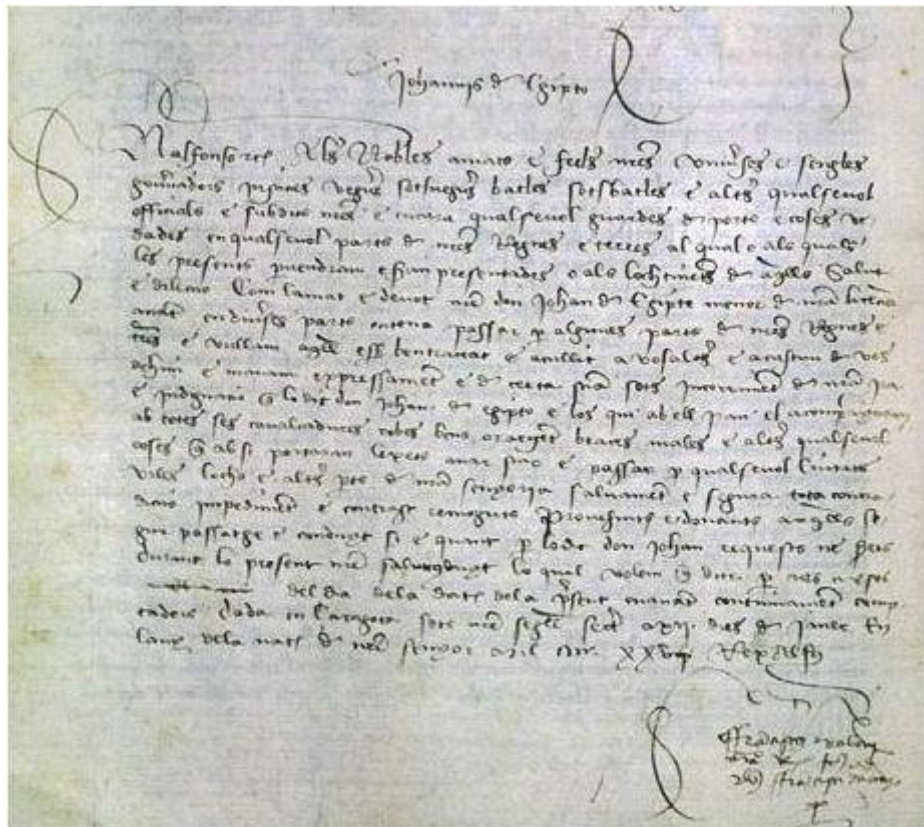 Johannis de Egipto
Nalfonso etc. Als Nobles amats e feels nres universes e sengles
governadors justicies veguers sotsveguers batles sotsbatles e altres qualsevol
officials e subdits nres e encara qualsevol guardes de ports e coses ve
dades en qualsevol parts de nres Regnes e terres al qual o als quals
les presents pervendran e seran presentades o als lochtinents de aquells Salut
e dileccio Com lamat e devot nre don Johan de Egipte menor de nra licencia
anant en diverses parts entena passar per algunes parts de nres Regnes e
terres e vullam aquell esser ben tractat e acullit a vosaltres e a cascun de vos
dehim e manam expressament e de certa sciencia sots incorriment de nra ira
e indignacio que lo dit don Johan de Egipto e los qui ab ell iran e l acompanyaran
ab totes ses cavalcadures robes bens or argent males e altres qualsevol
coses que ab si portaran lexets anar star e passar per qualsevol Ciutats
viles lochs e altres parts de nra senyoria salvament e segura tota contra
diccio impediment e contrast remoguts Provehints e donants a aquells se
gur passatge e conduyt si e quant per lo dit don Johan requests ne serets
durant lo present nre salvconduyt lo qual volem que dure per
del dia dela data dela present en avant continuament comp
tadors Dada en Caragoça sots nre segell secret a xij dies de Janer En
lany dela nativitat de nre senyor Mil CCCC XXV Rex Alfonsus